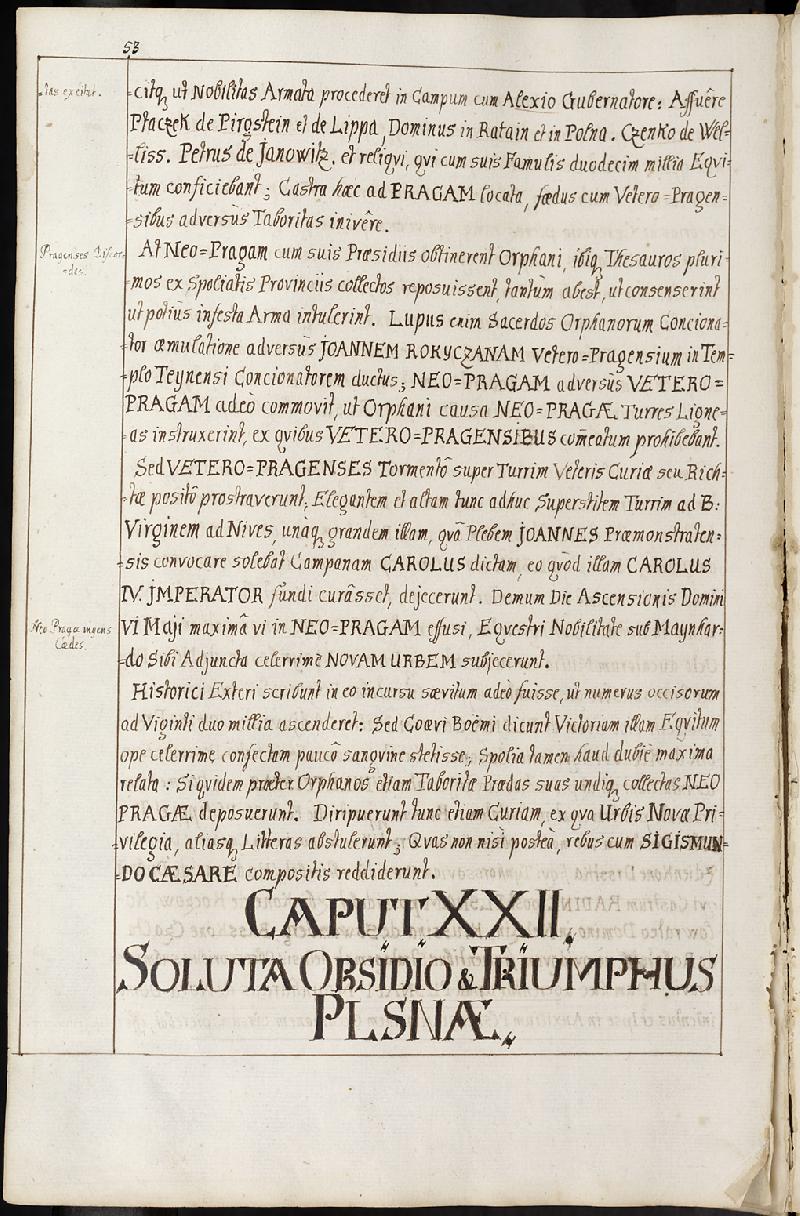 53
-tas excitat.
-citq, ut Nobilitas Armata procederet in Campum cum Alexio Gubernatore: Affuêre
Ptaczek de Pirgstein et de Lippa, Dominus in Ratain et in Polna. Czenko de Wel-
-tiss. Petrus de Janowitz, et reliqvi, qvi cum suis Famulis duodecim millia Eqvi-
-tum conficiebant; Castra hæc ad PRAGAM locata, fædus cum Vetero=Pragen-
-sibus adversùs Taboritas inivêre.
Pragenses Discor-
-des.
At Neo=Pragam cum suis Præsidiis obtinerent Orphani, ibiq, Thesauros pluri-
-mos ex Spoliatis Provinciis collectos reposuissent, tantùm abest, ut consenserint
ut potiùs infesta Arma intulerint. Lupus enim Sacerdos Orphanorum Conciona-
-tor æmulatione adversùs JOANNEM ROKYCZANAM Vetero=Pragensium in Tem-
-plo Teynensi Concionatorem ductus; NEO=PRAGAM adversùs VETERO=
PRAGAM adeò commovit, ut Orphani causa NEO=PRAGÆ Turres Ligne-
-as instruxerint, ex qvibus VETERO=PRAGENSIBUS com̃eatum prohibebant.
Sed VETERO=PRAGENSES Tormentô super Turrim Veteris Curiæ seu Rich-
-tæ positô prostraverunt; Elegantem et altam tunc adhuc Superstitem Turrim ad B:
Virginem ad Nives, unàq, grandem illam, qvâ Plebem JOANNES Præmonstraten-
-sis convocare solebat Campanam CAROLUS dictam, eo qvòd illam CAROLUS
IV. JMPERATOR fundi curâsset, dejecerunt. Demum Die Ascensionis Domini
Neo Pragæ ingens
Cædes.
VI Maji maximâ vi in NEO=PRAGAM effusi, Eqvestri Nobilitate sub Maynhar-
-do Sibi Adjuncta celerrimè NOVAM URBEM subjecerunt.
Historici Exteri scribunt in eo incursu sævitum adeò fuisse, ut numerus occisorum
ad Viginti duo millia ascenderet: Sed Coævi Boëmi dicunt Victoriam illam Eqvitum
ope celerrime confectam paucô sangvine stetisse; Spolia tamen haud dubiè maxima
relata: Siqvidem præter Orphanos etiam Taboritæ Prædas suas undiq, collectas NEO
PRAGÆ deposuerunt. Diripuerunt tunc etiam Curiam, ex qva Urbis Novæ Pri-
-vilegia, aliasq, Litteras abstulerunt; Qvas non nisi posteà, rebus cum SIGISMUN-
-DO CÆSARE compositis reddiderunt.
CAPUT XXII.
SOLUTA OBSIDIO & TRIUMPHUS
PLSNÆ.